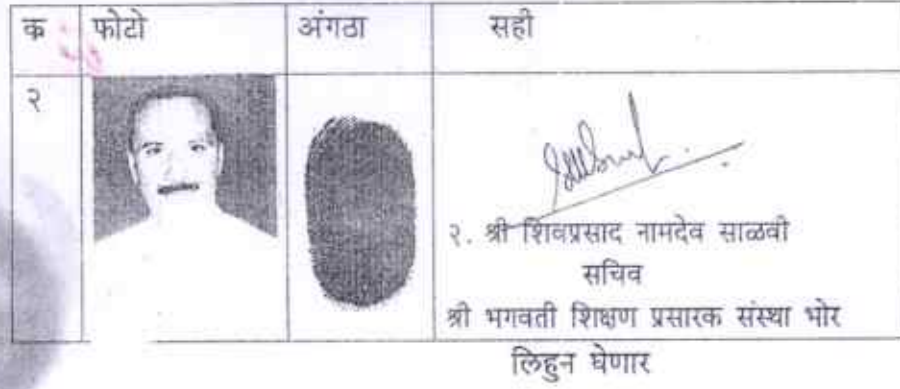 क्र फोटो अंगठा सही
२
२. श्री शिवप्रसाद नामदेव साळवी
सचिव
श्री भगवती शिक्षण प्रसारक संस्था भोर
लिहुन घेणार